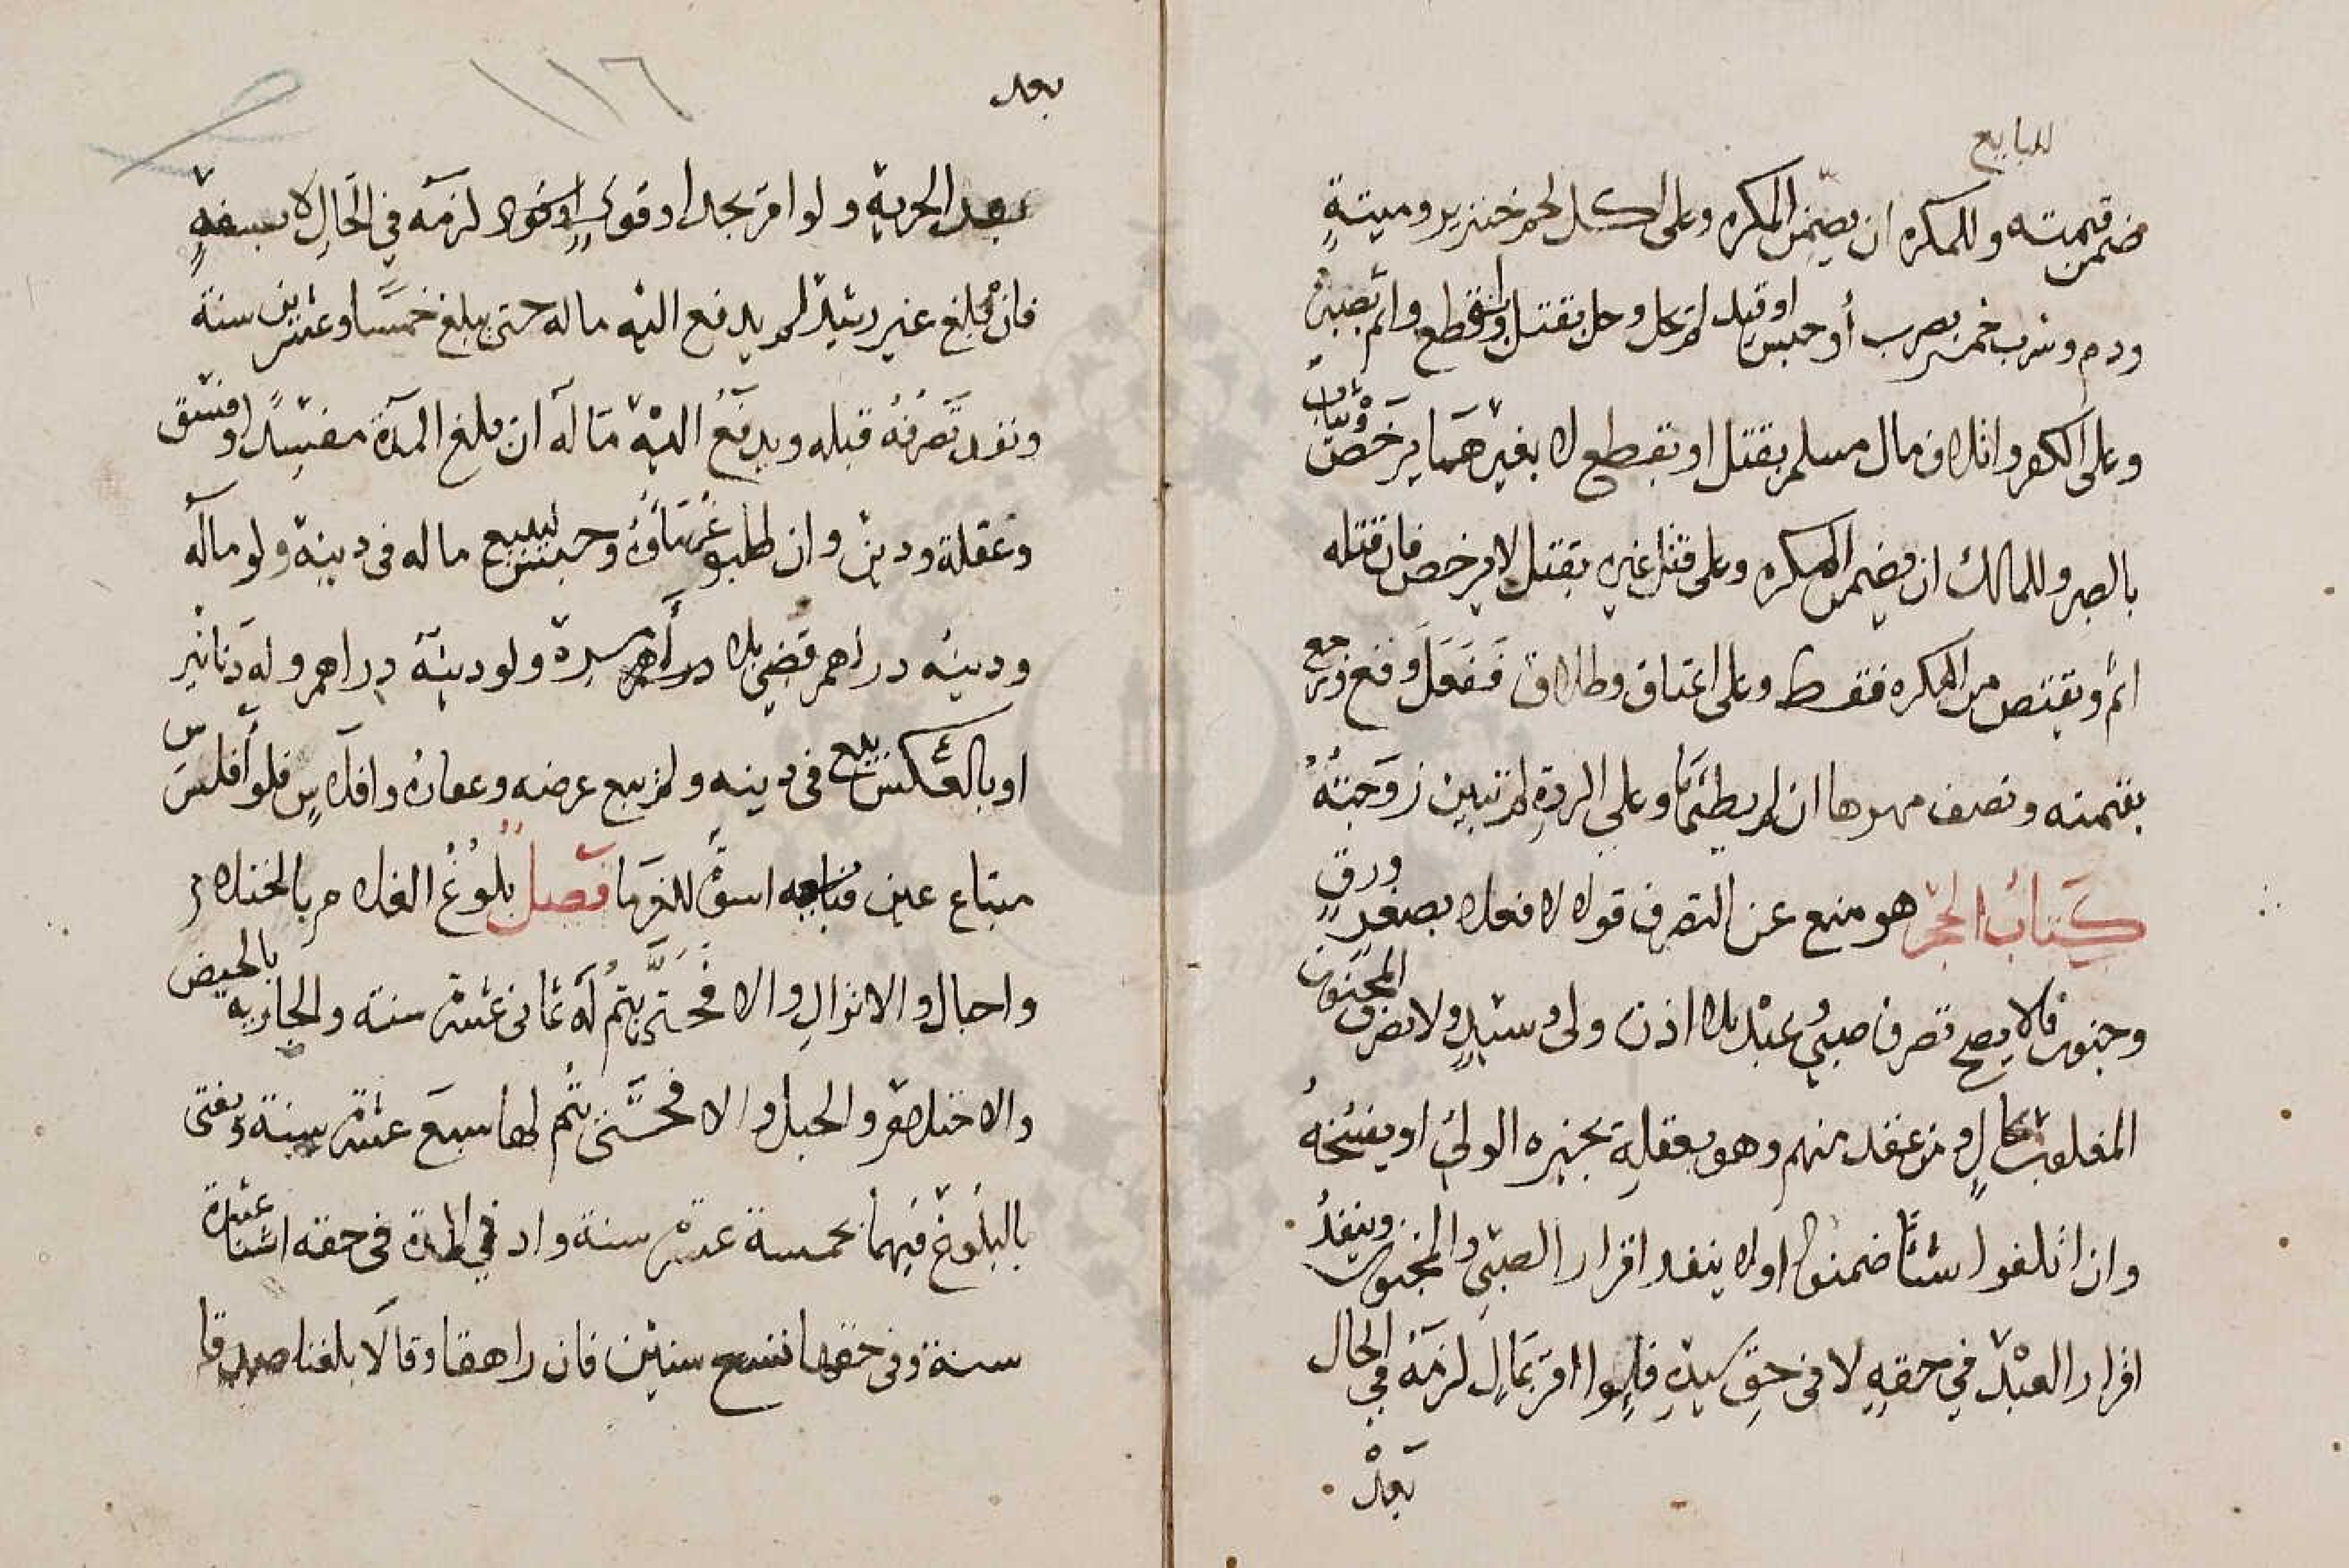 للبايع
ضمن قيمته وللمكره ان يضمن المكره وعلى اكل لحم خنزير وميتةٍ
ودم وشرب خمر بضرب أو حبس او قيد لم يحل وحل بقتل وانقطع واثم بصبره
وعلى الكفر واتلاف مال مسلم بقتل او بقطع لا بغيرهما يرخص ويثاب
بالصبر وللمالك ان يضمن المكره وعلى قتل غيره بقتل لا يرخص فان قتله
اثم ويقتص من المكره فقط وعلى اعتاق وطلاق فَفَعَلَ وقع ورجع
بقيمته ونصف مهرها ان لم يطئها وعلى الردة لم تبين زوجته
كتاب الحجر هو منع عن التصرف قولا لا فعلا بصغر ورق
وجنون فلا يصح تصرف صبي وعبد بلا اذن ولى وسيدٍ ولا تصرف المجنون
المغلوب بحالٍ ومن عقد منهم وهو يعقله يجيزه الولي او يفسخه
وان اتلفوا شئا ضمنوا ولا ينفد اقرار الصبي والمجنون وينفد
اقرار العبد في حقه لا فى حق سيده فلوا اقر بمال لزمه في الحال
بعد
بعد
١١٦
بعد الحرية ولو اقر بحد او قود لزمه في الحال لا بسفهٍ
فان بلغ غير رشيد لم يدفع اليه ماله حتى يبلغ خمسا وعشرين سنة
ونفد تصرفه قبله ويدفع اليه ماله ان بلغ المدة مفسدا وفسق
وغفلة ودين وان طلبو غرماؤه وحبس ليبيع ماله فى دينه ولو ماله
ودينه دراهم قضى بلا ولو دينه دراهم وله دنانير
او بالعكس بيع فى دينه ولم يبع عرضه وعقاره وافلاس فلو أفلس
مبتاع عين فبايعه اسوة للغرما فصل بلوغ الغلام بالاحتلام
واحبال والانزال والا فحتى يتم له ثمانى عشرة سنة والجارية بالحيض
والاحتلام والحبل والا فحتى يتم لها سبع عشرة سنة ويفتى
بالبلوغ فيهما بخمسة عشرة سنة وادنى المدة فى حقه اثنتا عشرة
سنة وفى حقها تسع سنين فان راهقا وقالا بلغنا صدقا